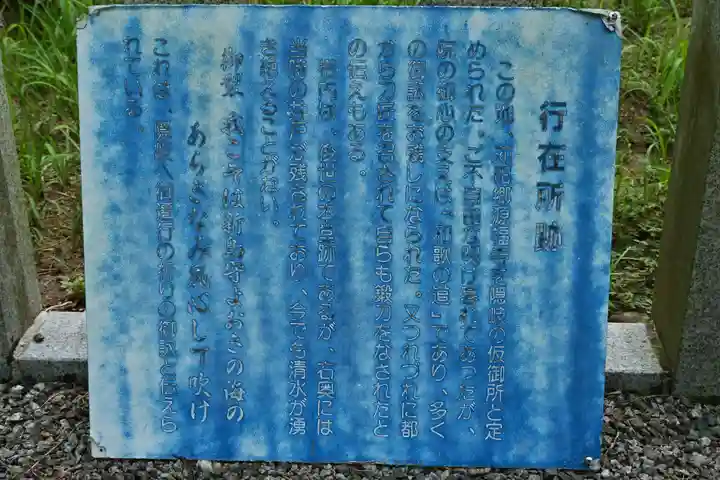 行在所跡
この地、苅田郷源福寺を隠岐の仮御所と定
められた。ご不自由な御生活であったが、
京の御心の支えは、「和歌の道」であり、多く
の御歌をお残しになられた。又つれづれに都
から刀匠を召されて自らも鍛刀をなされたと
の伝えもある。
右の は、 の本堂跡であるが、右奥には
当時の井戸が残されており、今でも清水が湧
き絶えることがない。
御製 我こそは新島守よおきの海の
あらきなみ風心して吹け
これは、隠岐へ御遷行の折りの御歌と伝えら
れている。